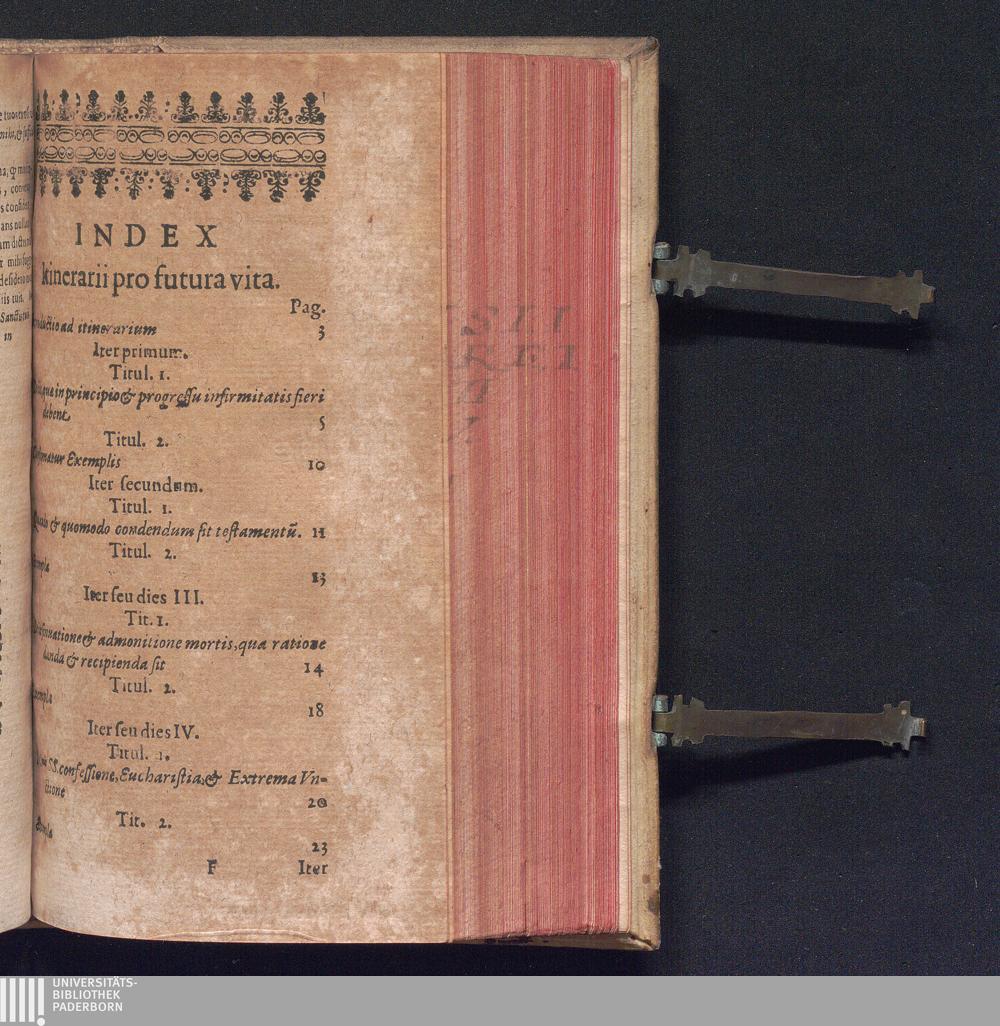 INDEX
Itinerarii pro futura vita.
Pag.
ad itinerarium 3
Iter primum.
Titul. 1.
quæ in principio & progressu infirmitatis fieri
debent 5
Titul. 2.
Exemplis 10
Iter secundum.
Titul. 1.
& quomodo condendum sit testamentū. 11
Titul. 2.
13
Iter seu dies III.
Tit. 1.
& admonitione mortis, qua ratione
danda & recipienda sit 14
Titul. 2.
18
Iter seu dies IV.
Titul. 1.
SS. confessione, Eucharistia, & Extrema Vn-
ctione 20
Tit. 2.
23
F Iter
UNIVERSITÄTS-
BIBLIOTHEK
PADERBORN